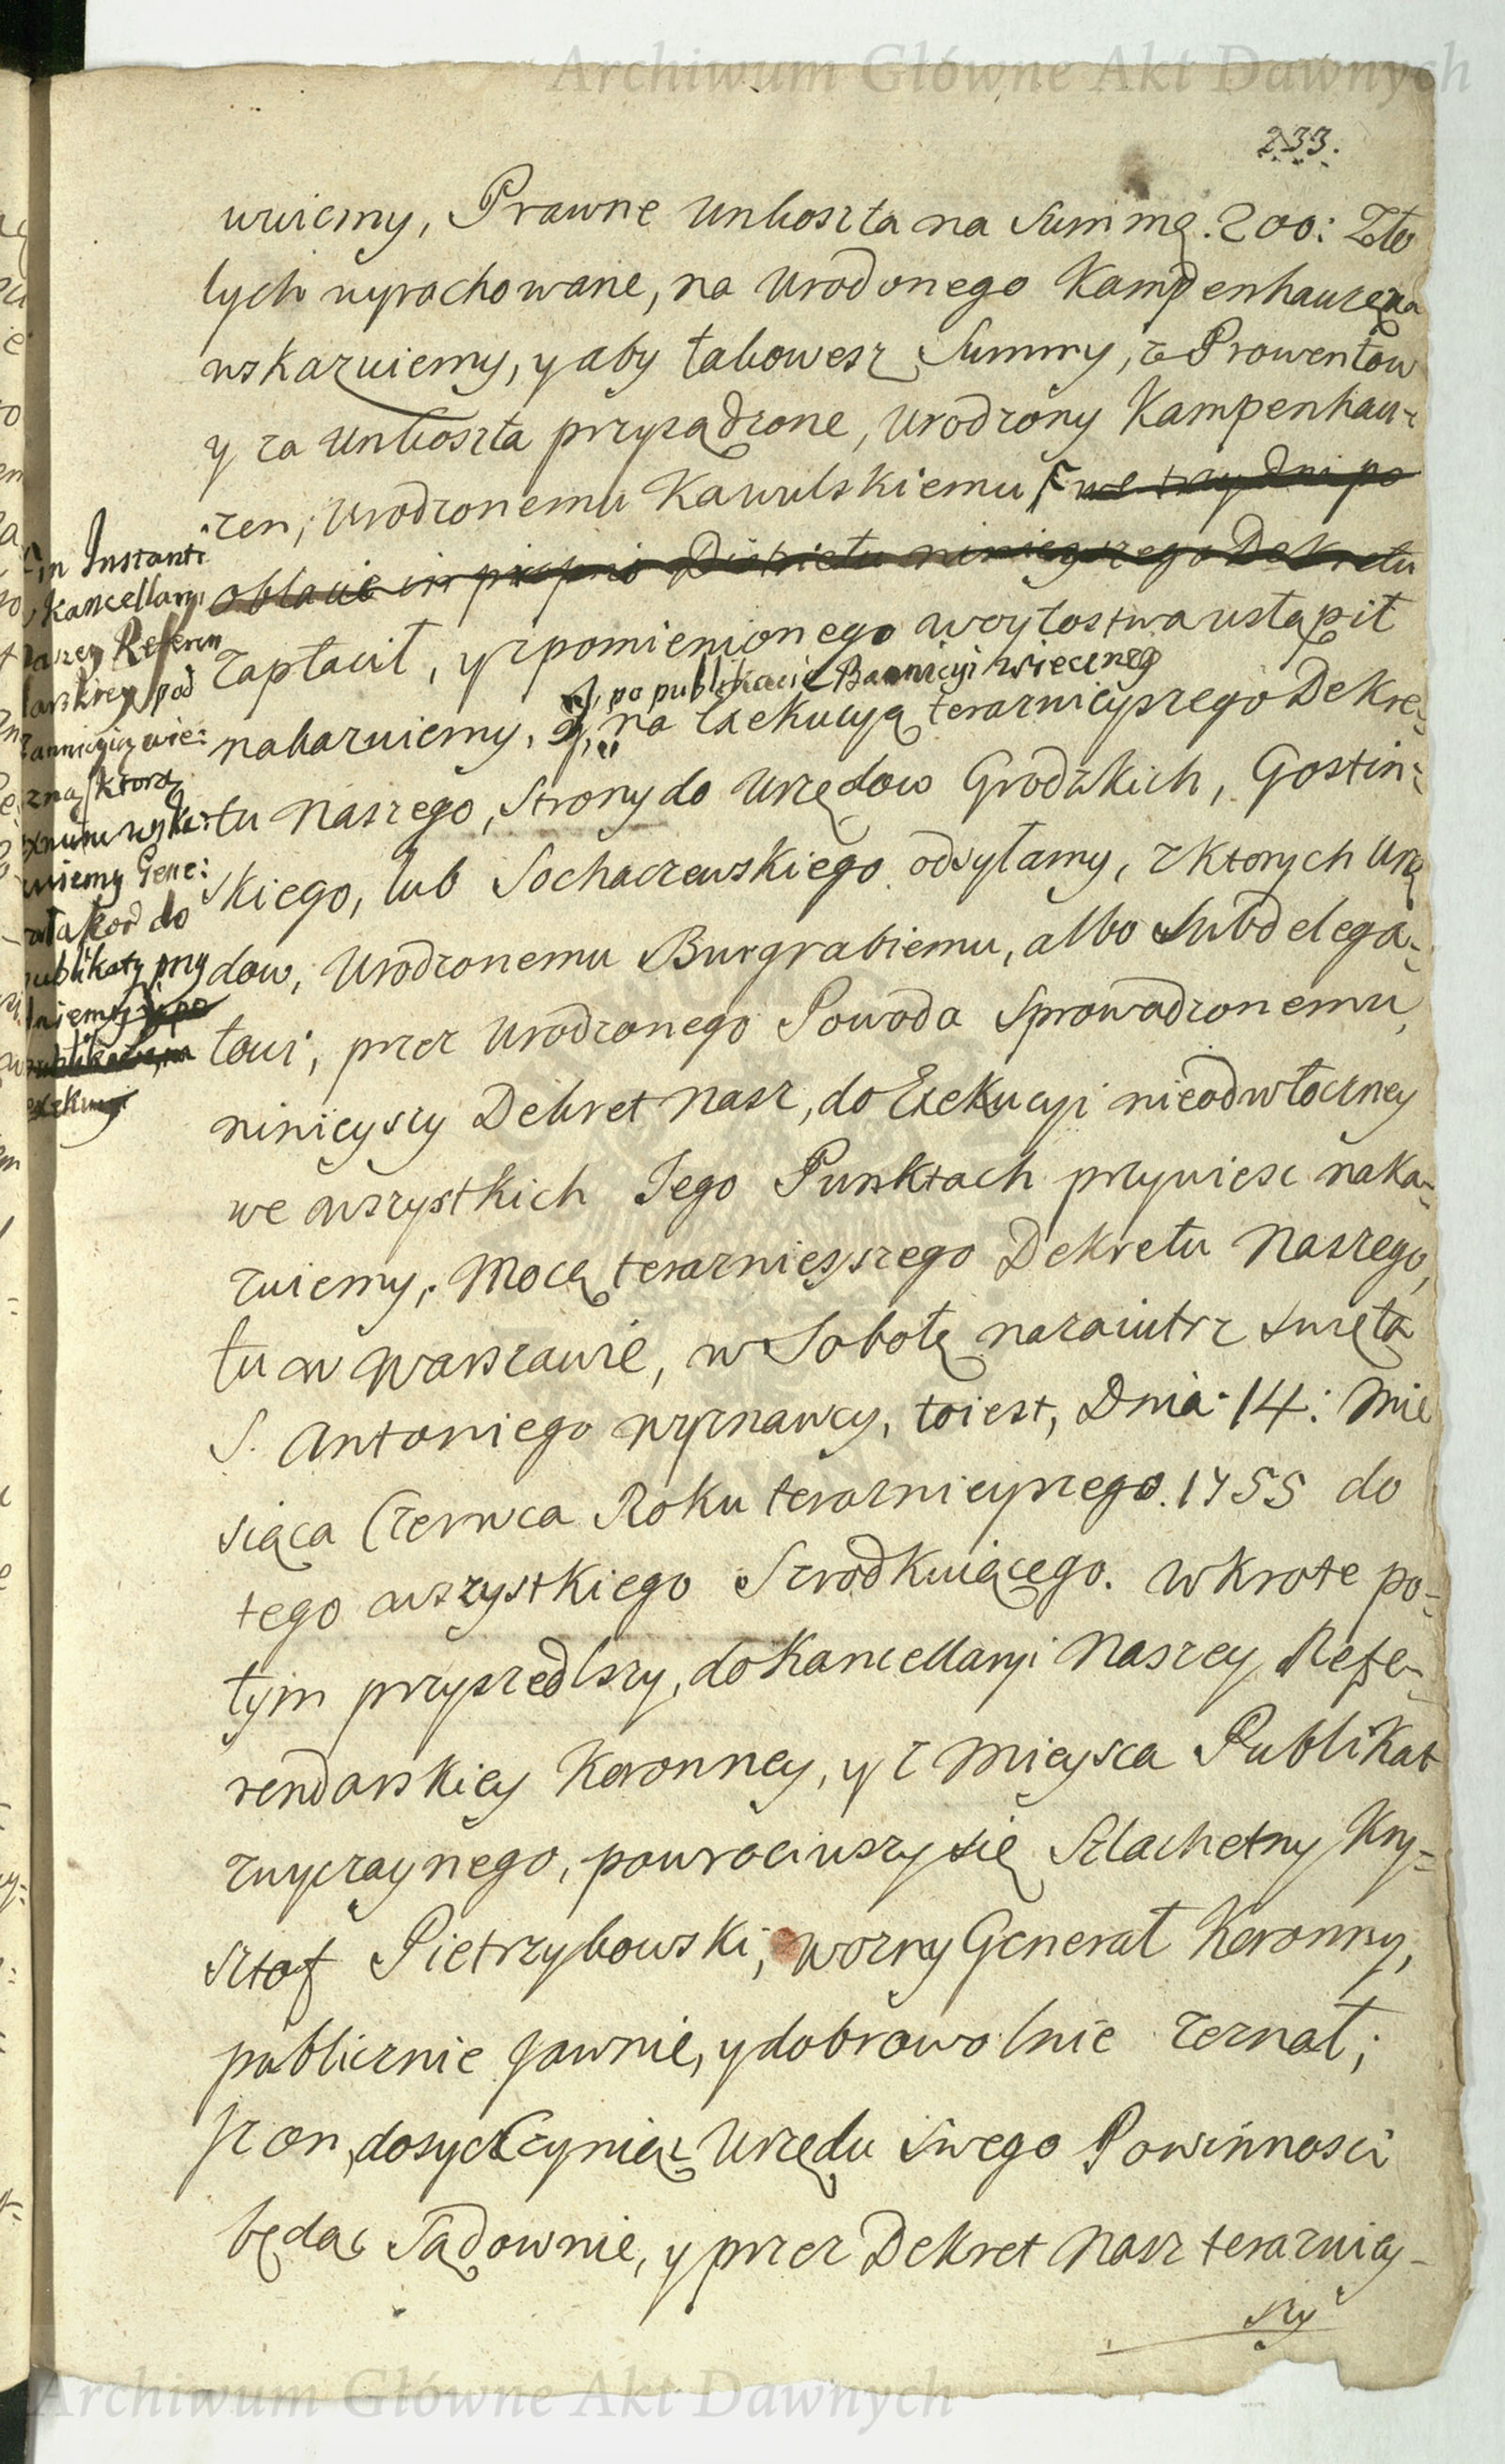 Archiwum Główne Akt Dawnych
233.
wuiemy, Prawne Unkoszta na Summę. 200: Zło
tych wyrachowane, na Urodonego Kampenhauzena
wskazuiemy, y aby takowesz Summy, z Prowentow
y za Unkoszta przysądzone, Urodzony Kampenhau-
zen, Urodzonemu Kawulskiemu we trzy dni po
oblacie in Districtu ninieyszego Dekretu
zapłacił, y zpomienionego Woytostwa ustąpił
po publikacie Bannicyi wieczney
nakazuiemy, na Exekucyą teraznieyszego Dekre-
tu Naszego, Strony do Urzędow Grodzkich, Gostin-
skiego, lub Sochaczewskiego odsyłamy, z ktorych Urzę
dow, Urodzonemu Burgrabiemu, albo Subdelega-
towi, przez Urodzonego Powoda Sprowadzonemu,
ninieyszy Dekret Nasz, do Exekucyi nieodwłoczney
we wszystkich Jego Punktach przywiesc naka-
zuiemy, Mocą teraznieyszego Dekretu Naszego,
tu w Warszawie, w Sobotę nazaiutrz Swięta
S. Antoniego wyznawcy, toiest, Dnia 14: Mie
siąca Czerwca Roku teraznieyszego. 1755 do
tego wszystkiego Szrodkuiącego. Wkrotce po-
tym przyszedłszy, do Kancellaryi Naszey Refe-
rendarskiey Koronney, y z Mieysca Publikat
zwyczaynego, powrociwszy się Szlachetny Kry-
sztof Pietrzykowski, Wozny Generał Koronny,
publicznie Jawnie, y dobrowolnie zeznał;
Jz on, dosyc Czyniąc Urzędu Swego Powinnosci
będąc Sądownie, y przez Dekret Nasz terazniey-
szy
in Instanti
Kancellaryi
naszey Referen
darskiey pod
Bannicyią wie:
czną, ktorą
wska:
zuiemy Gene:
rała Kor do
publikaty przy
po
publikacyi, na
Exekucyą
Archiwum Główne Akt Dawnych